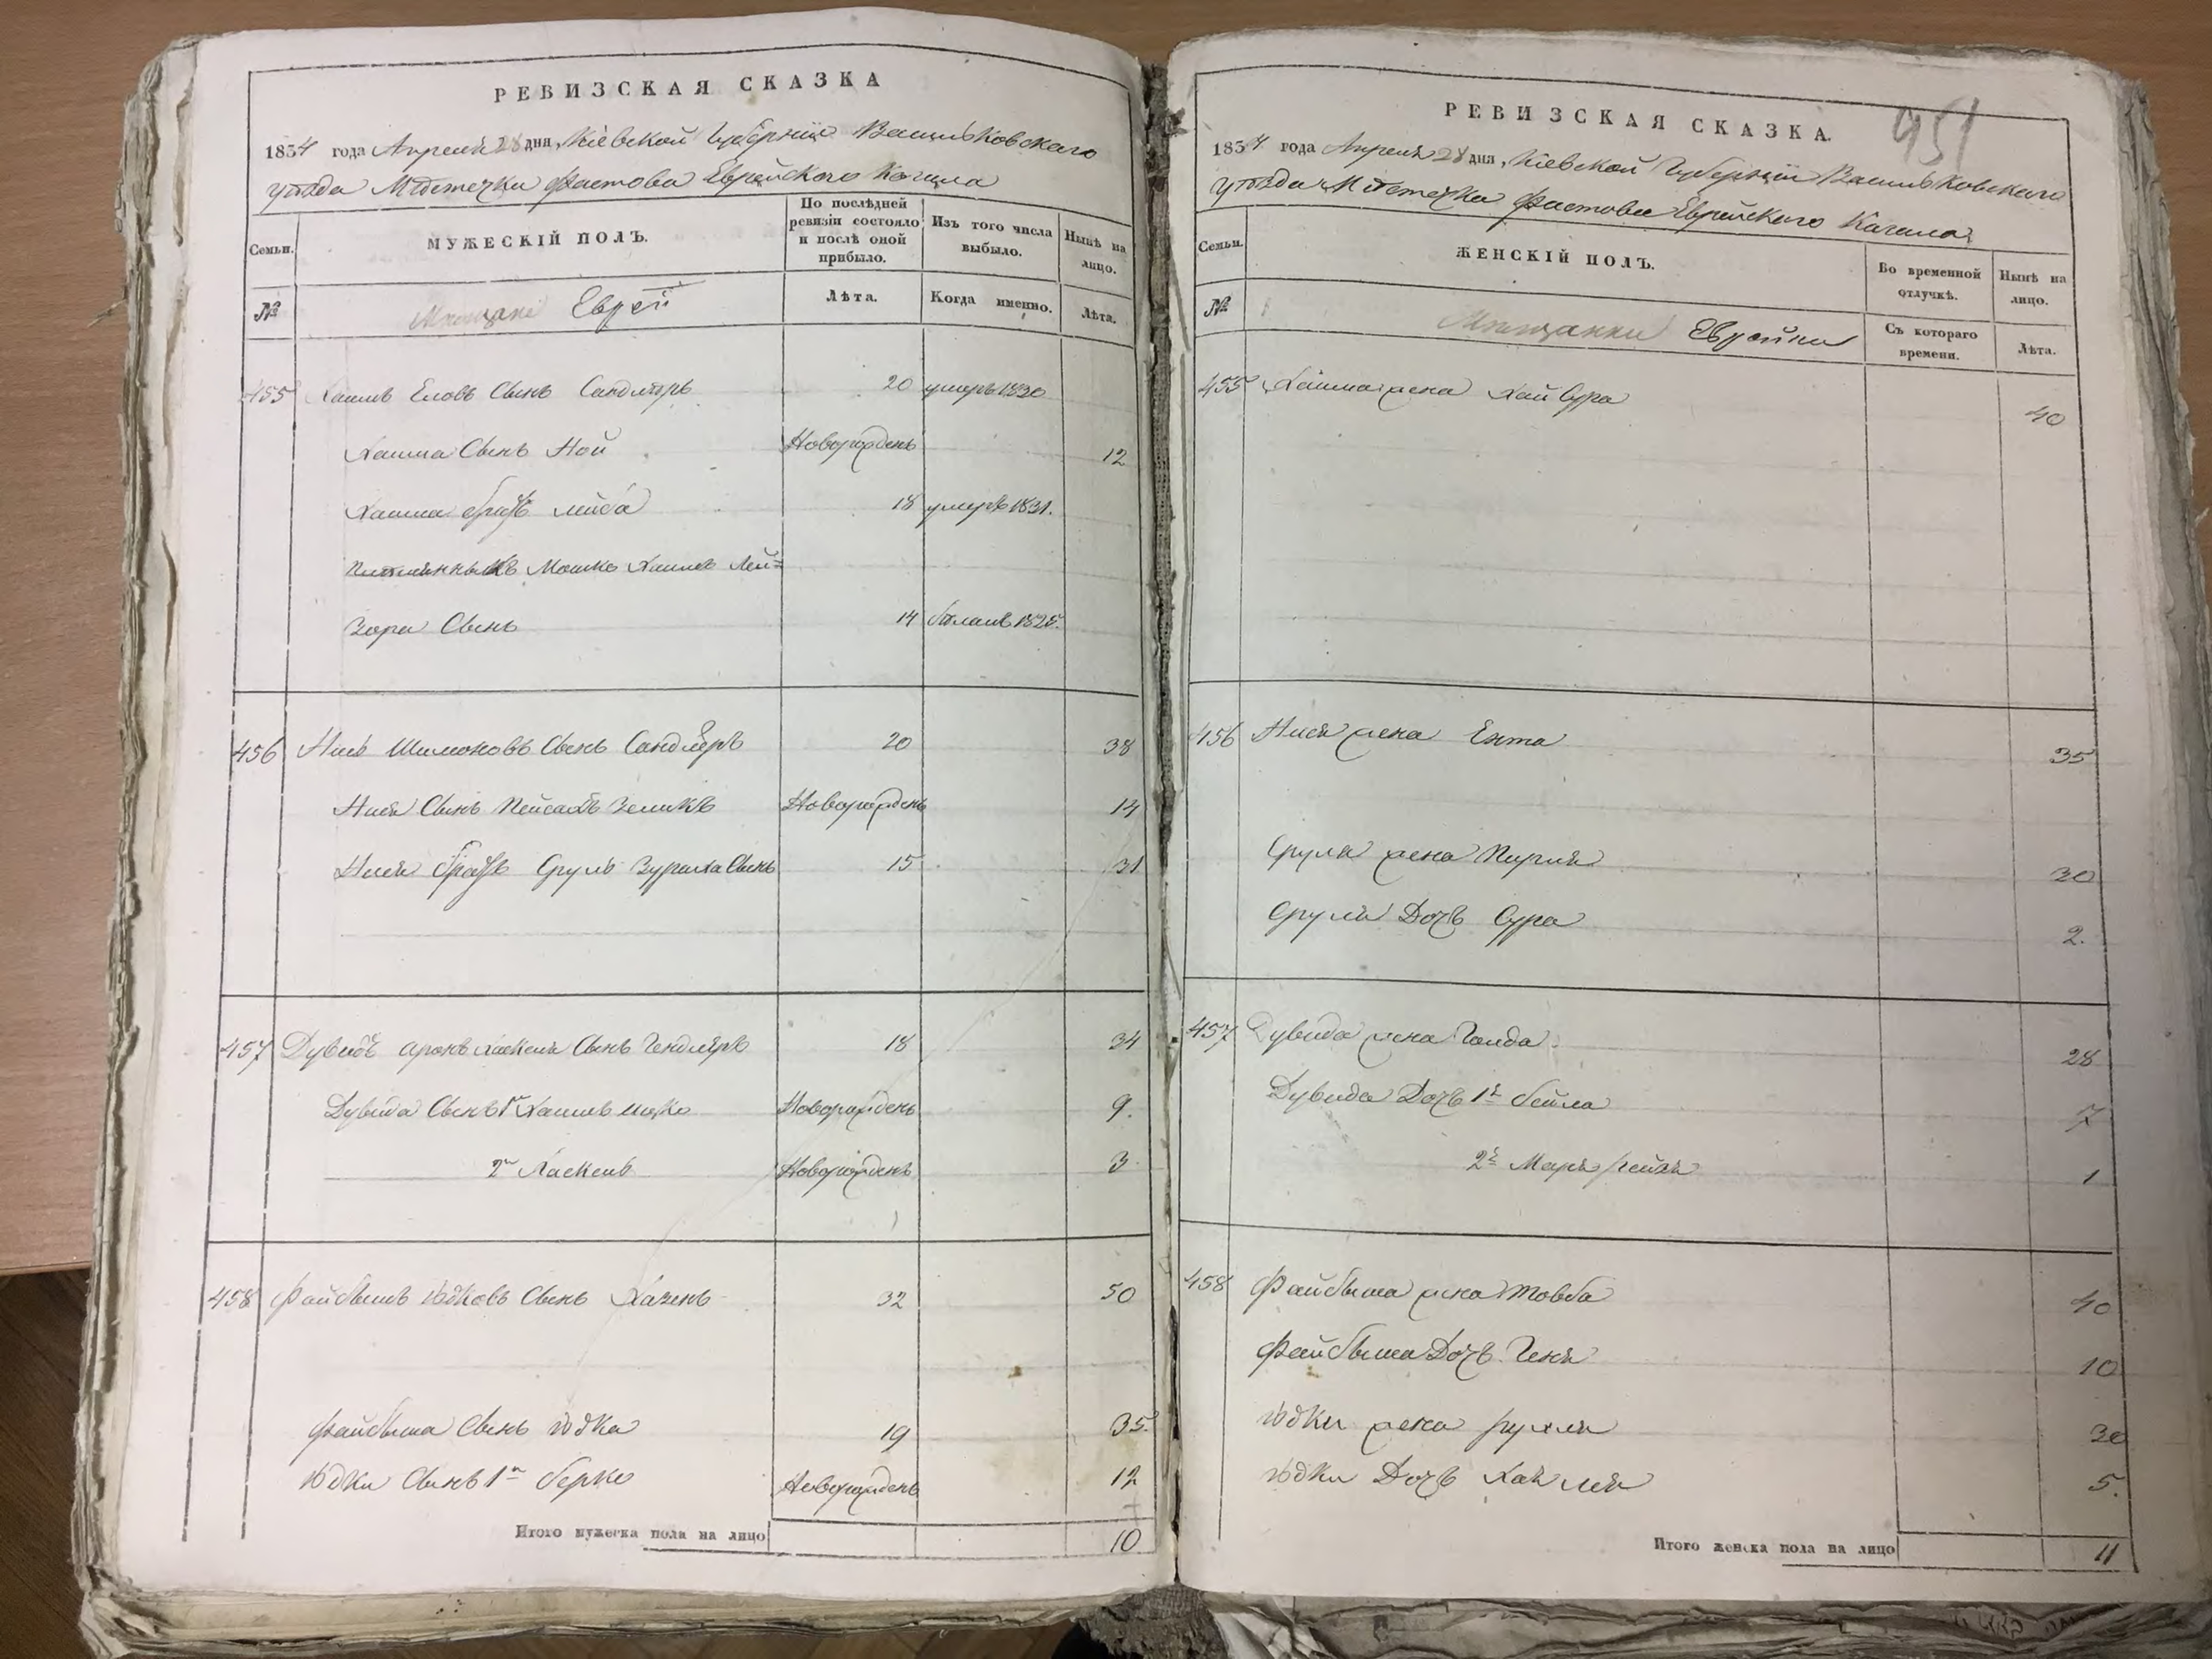 РЕВИЗСКАЯ СКАЗКА
1834 года Апреля 28 дня, Кіевской Губерніи Васильковского
уѣзда Мѣстечка Фастова Еврейского Кагала
Семьи.
МУЖЕСКІЙ ПОЛЪ.
По послѣдней ревизіи состояло и послѣ оной прибыло.
Изъ того числа выбыло.
Нынѣ на лицо.
№
Мѣщане Евреи
Лѣта.
Когда именно.
Лѣта.
455 Хаимъ Сынъ Сандлеръ 20 умеръ 1830
Хаима Сынъ Ной Новорожденъ 12
Хаима братъ Лейба 18 умеръ 1831.
Племянникъ Мошко Хаимъ Лей=
зора Сынъ 14
456 Нисъ Шимоновъ Сынъ Сандлеръ 20 38
Нися Сынъ Пейсахъ Зеликъ Новорожденъ 14
Нися братъ Сруль Сынъ 15 31
457 Дувидъ Аронъ Хаскеля Сынъ Гендлеръ 18 34
Дувида Сынъ 1й Хаимъ Ицко Новорожденъ 9.
2й Хаскель Новорожденъ 3
458 Файбышъ Юдковъ Сынъ Хазенъ 32 50
Файбыша Сынъ Юдка 19 35.
Юдки Сынъ 1й Берко Новорожденъ 12
Итого мужеска пола на лицо 10
451
РЕВИЗСКАЯ СКАЗКА.
1834 года Апреля 28 дня, Кіевской Губерніи Васильковского
уѣзда Мѣстечка Фастова Еврейского Кагала
Семьи.
ЖЕНСКІЙ ПОЛЪ.
Во временной отлучкѣ.
Нынѣ на лицо.
№
Мѣщанки Еврейки
Съ котораго времени.
Лѣта.
455 Хаима жена Хай Сура 40
456 Нися жена Ента 35
Сруля жена 30
Сруля Дочь Сура 2.
457 Дувида жена Голда 28
Дувида Дочь 1я Бейла 7
2я Маря Рейзя 1
458 Файбыша жена Товба 40
Файбыша Дочь Геня 10
Юдки жена Рухля 30
Юдки Дочь Хая Лея 5.
Итого женска пола на лицо 11